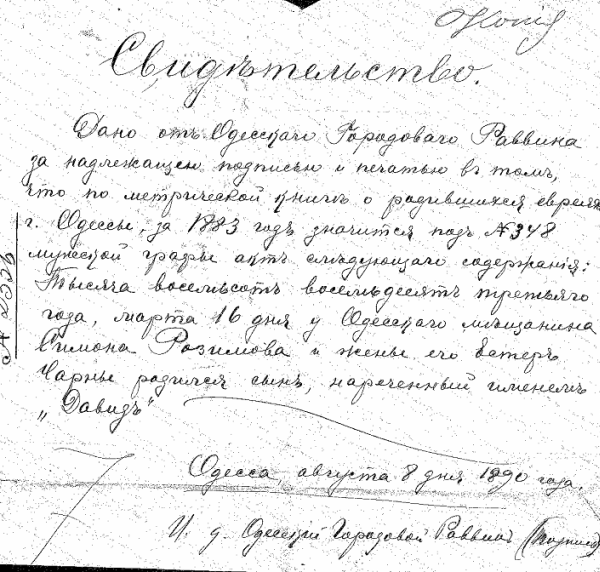 Свидѣтельство.
Дано отъ Одесскаго Городоваго Раввина
за надлежащею подписью и печатью въ томъ,
что по метрической книгѣ о родившихся евреяхъ
г. Одессы, за 1883 годъ значится подъ № 348
мужской графы актъ слѣдующаго содержанія:
Тысяча восемьсотъ восемьдесятъ третьяго
года, марта 16 дня у Одесскаго мѣщанина
Симона Розимова и жены его Эстеръ
Чарны родился сынъ, нареченный именемъ
„Давидъ“
Одесса, августа 8 дня 1890 года.
И. д. Одесскій Городовой Раввинъ (подпись)